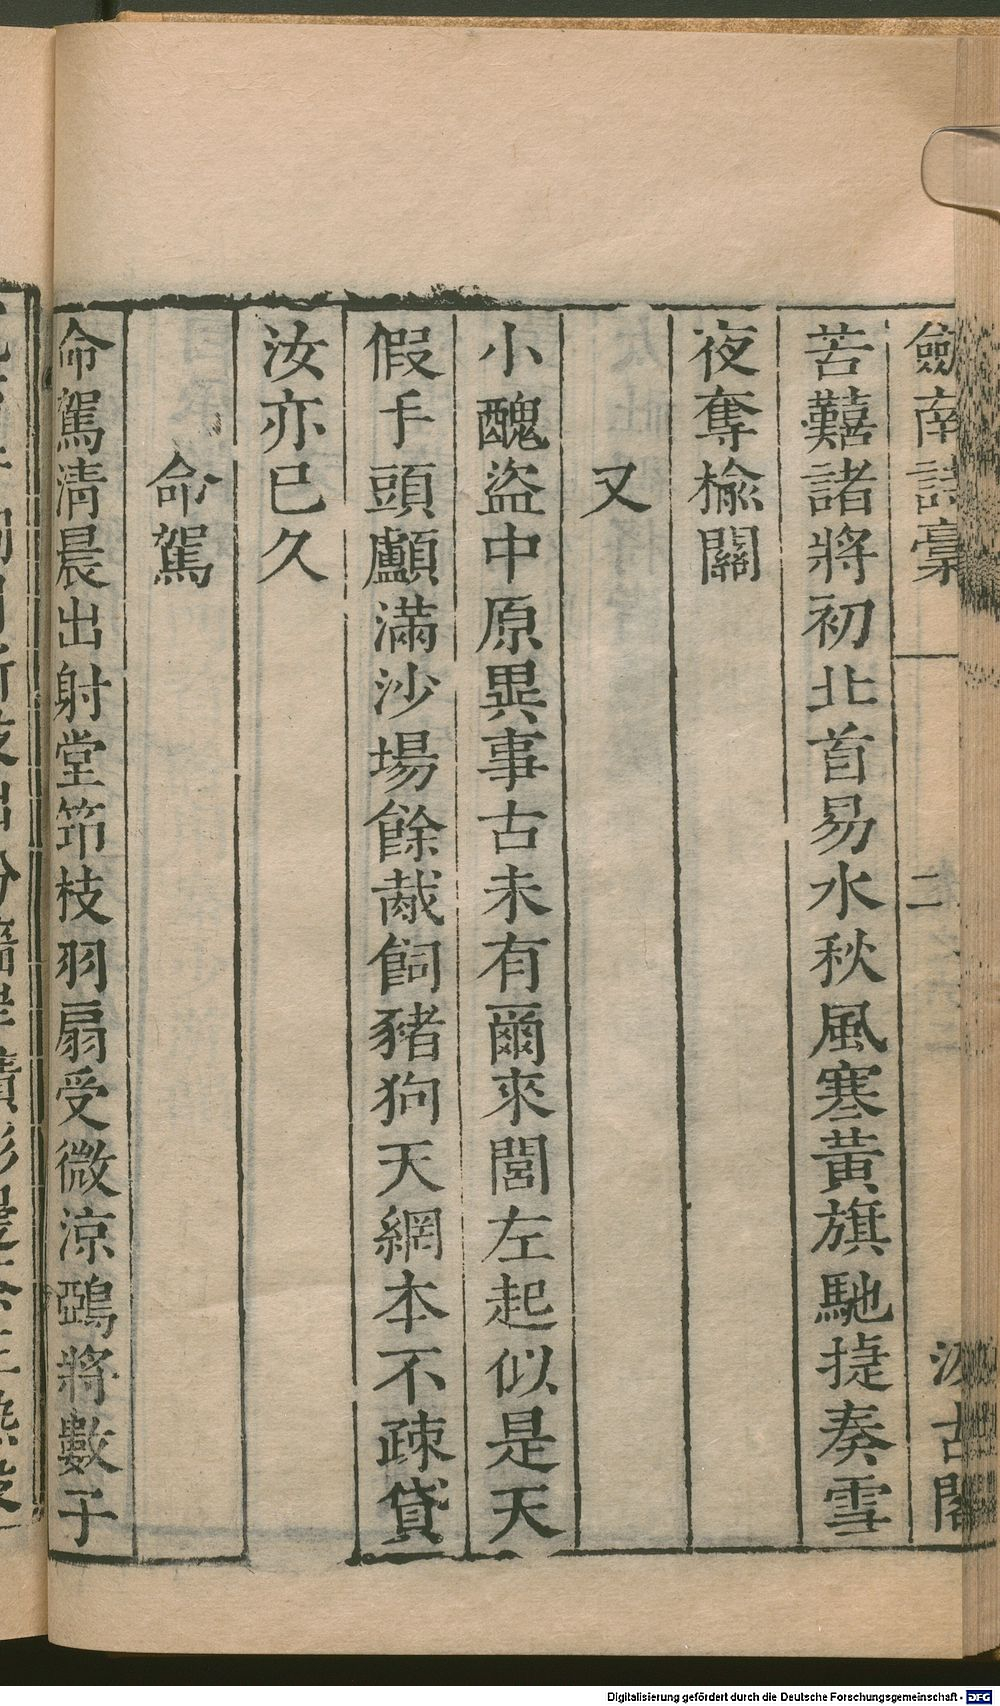 劒南詩稾 二 汲古閣
苦囏諸將初北首易水秋風寒黃旗馳捷奏雪
夜奪榆關
又
小醜盜中原異事古未有爾來閭左起似是天
假手頭顱滿沙場餘胾飼豬狗天網本不疎貸
汝亦已久
命駕
命駕清晨出射堂笻枝羽扇受微涼鵶將數子
Digitalisierung gefördert durch die Deutsche Forschungsgemeinschaft - DFG